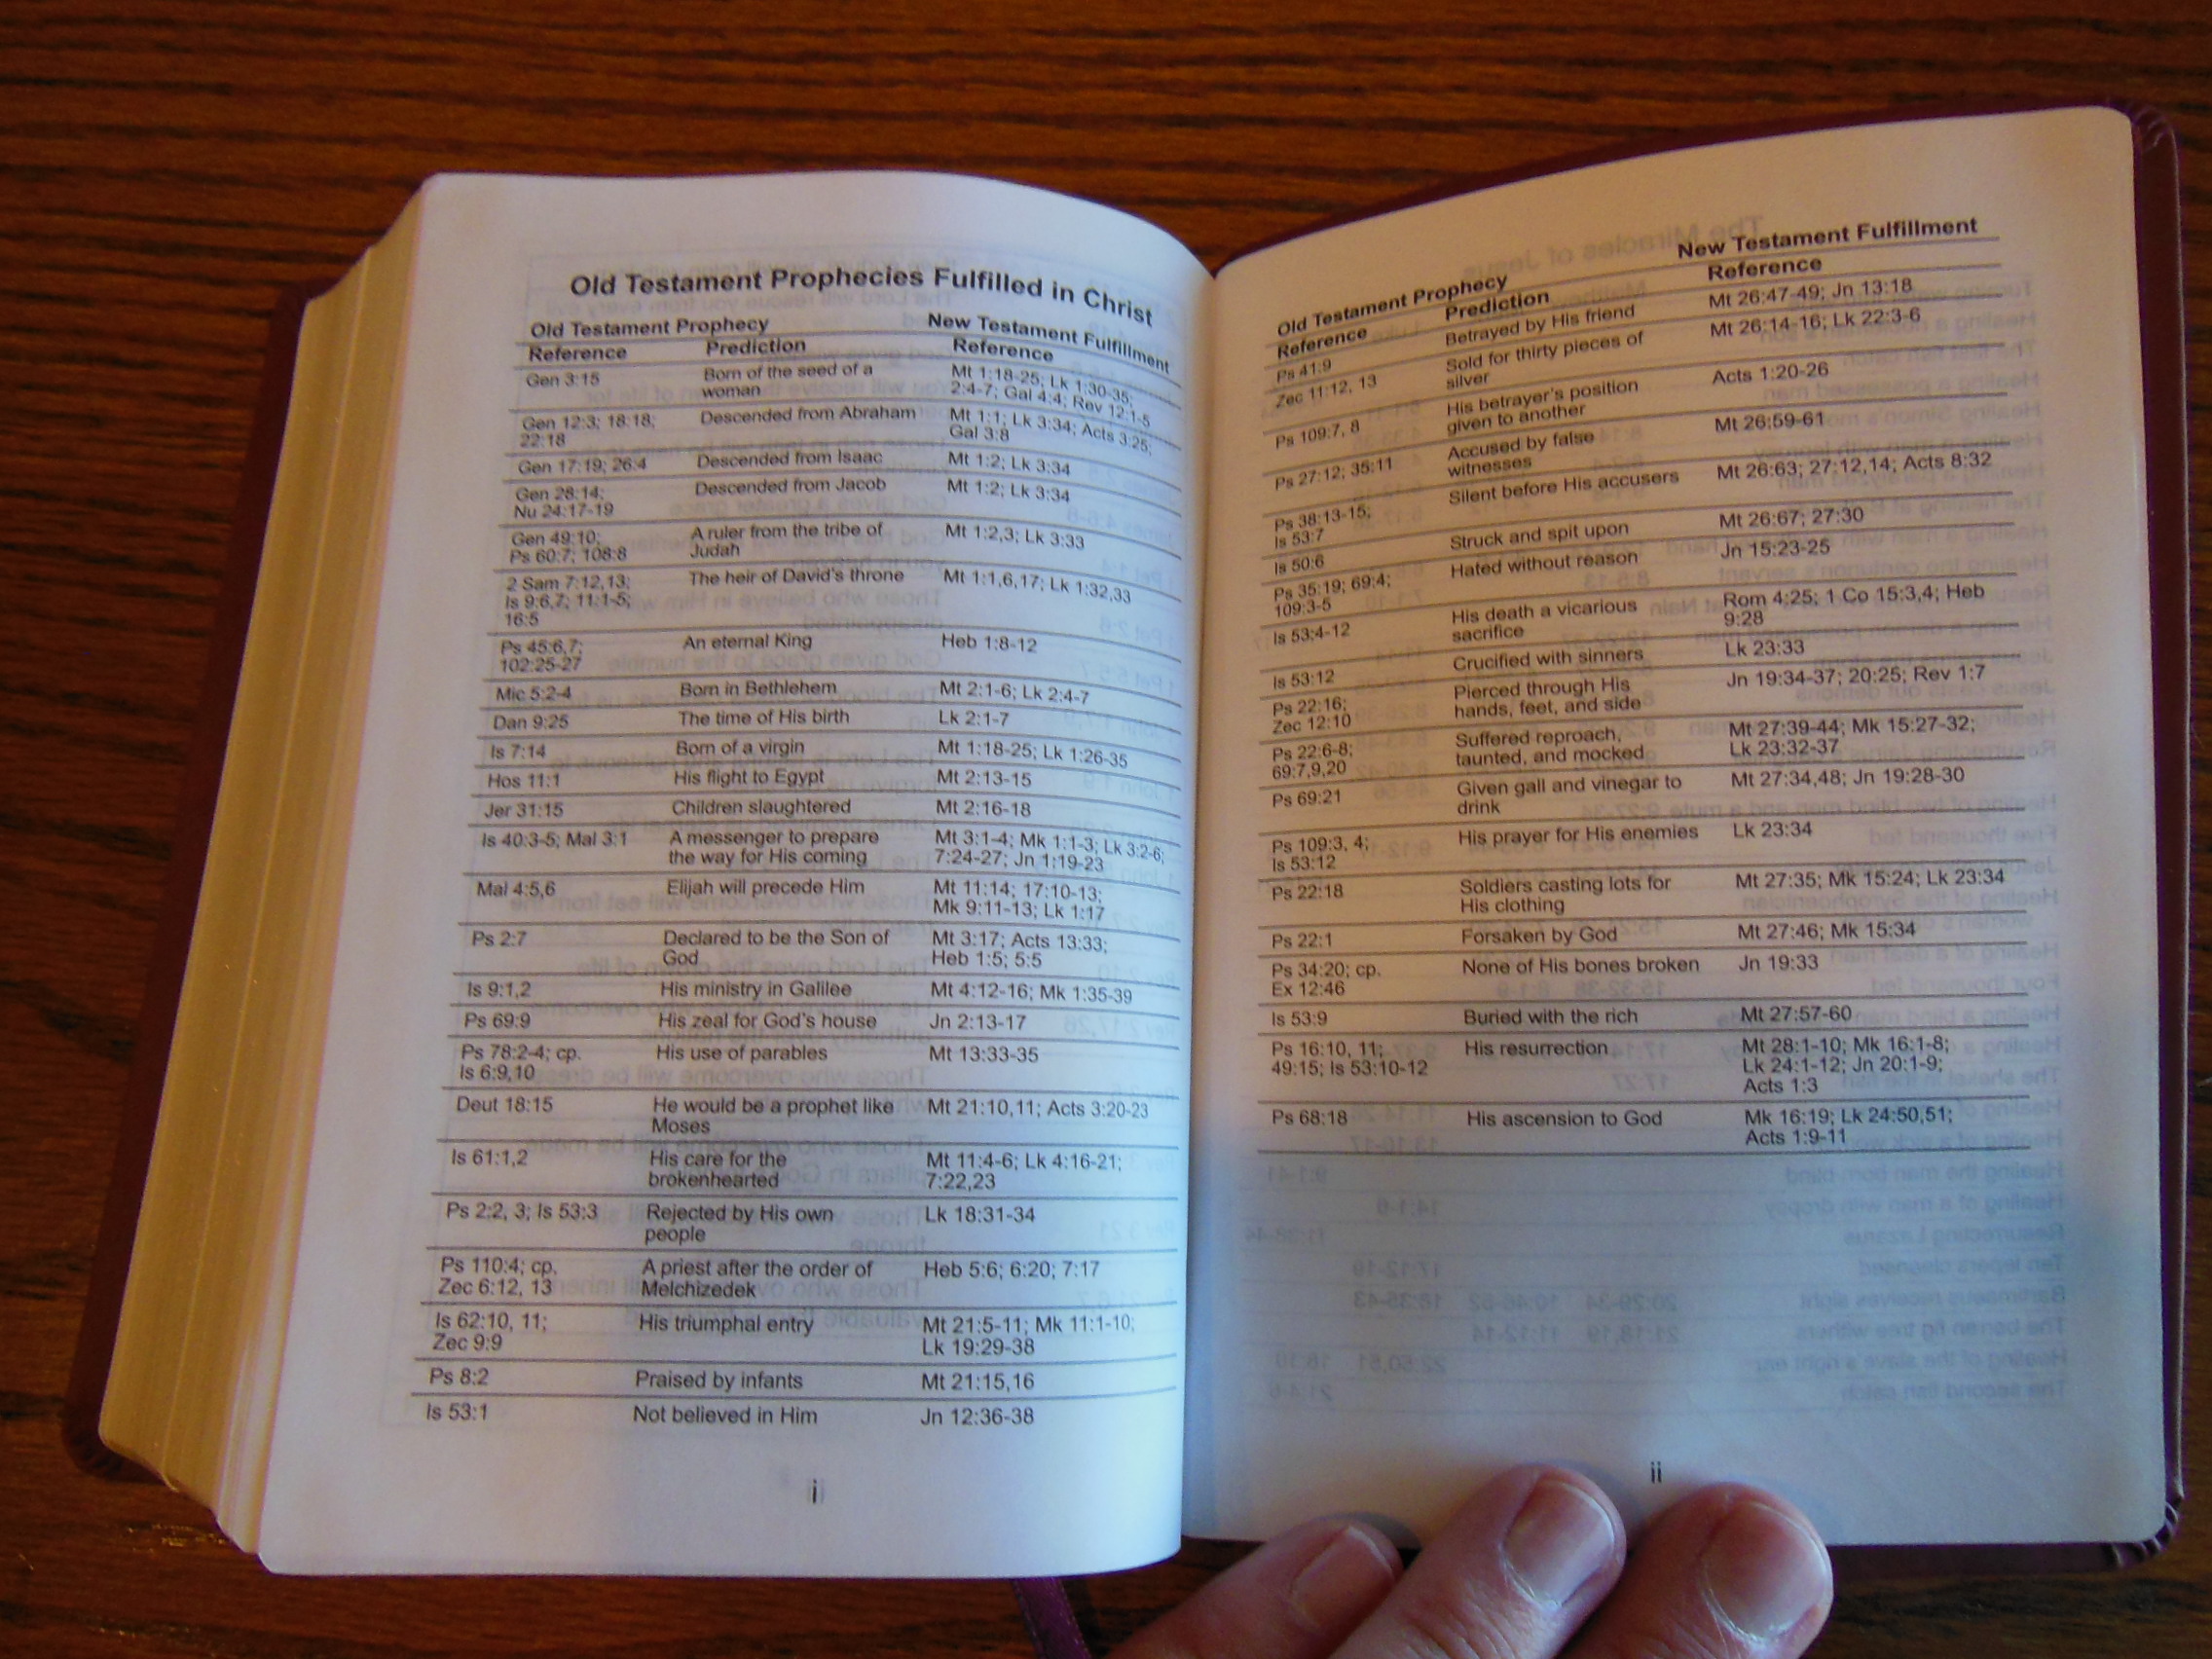 Old Testament Prophecies Fulfilled in Christ
Old Testament Prophecy New Testament Fulfillment
Reference Prediction Reference
Gen 3:15 Born of the seed of a Mt 1:18-25; Lk 1:30-35;
woman 2:4-7; Gal 4:4; Rev 12:1-5
Gen 12:3; 18:18; Descended from Abraham Mt 1:1; Lk 3:34; Acts 3:25;
22:18 Gal 3:8
Gen 17:19; 26:4 Descended from Isaac Mt 1:2; Lk 3:34
Gen 28:14; Descended from Jacob Mt 1:2; Lk 3:34
Nu 24:17-19
Gen 49:10; A ruler from the tribe of Mt 1:2,3; Lk 3:33
Ps 60:7; 108:8 Judah
2 Sam 7:12,13; The heir of David's throne Mt 1:1,6,17; Lk 1:32,33
Is 9:6,7; 11:1-5;
16:5
Ps 45:6,7; An eternal King Heb 1:8-12
102:25-27
Mic 5:2-4 Born in Bethlehem Mt 2:1-6; Lk 2:4-7
Dan 9:25 The time of His birth Lk 2:1-7
Is 7:14 Born of a virgin Mt 1:18-25; Lk 1:26-35
Hos 11:1 His flight to Egypt Mt 2:13-15
Jer 31:15 Children slaughtered Mt 2:16-18
Is 40:3-5; Mal 3:1 A messenger to prepare Mt 3:1-4; Mk 1:1-3; Lk 3:2-6;
the way for His coming 7:24-27; Jn 1:19-23
Mal 4:5,6 Elijah will precede Him Mt 11:14; 17:10-13;
Mk 9:11-13; Lk 1:17
Ps 2:7 Declared to be the Son of Mt 3:17; Acts 13:33;
God Heb 1:5; 5:5
Is 9:1,2 His ministry in Galilee Mt 4:12-16; Mk 1:35-39
Ps 69:9 His zeal for God's house Jn 2:13-17
Ps 78:2-4; cp. His use of parables Mt 13:33-35
Is 6:9,10
Deut 18:15 He would be a prophet like Mt 21:10,11; Acts 3:20-23
Moses
Is 61:1,2 His care for the Mt 11:4-6; Lk 4:16-21;
brokenhearted 7:22,23
Ps 2:2, 3; Is 53:3 Rejected by His own Lk 18:31-34
people
Ps 110:4; cp. A priest after the order of Heb 5:6; 6:20; 7:17
Zec 6:12, 13 Melchizedek
Is 62:10, 11; His triumphal entry Mt 21:5-11; Mk 11:1-10;
Zec 9:9 Lk 19:29-38
Ps 8:2 Praised by infants Mt 21:15,16
Is 53:1 Not believed in Him Jn 12:36-38
i
Old Testament Prophecy New Testament Fulfillment
Reference Prediction Reference
Ps 41:9 Betrayed by His friend Mt 26:47-49; Jn 13:18
Zec 11:12, 13 Sold for thirty pieces of Mt 26:14-16; Lk 22:3-6
silver
Ps 109:7, 8 His betrayer's position Acts 1:20-26
given to another
Ps 27:12; 35:11 Accused by false Mt 26:59-61
witnesses
Ps 38:13-15; Silent before His accusers Mt 26:63; 27:12,14; Acts 8:32
Is 53:7
Is 50:6 Struck and spit upon Mt 26:67; 27:30
Ps 35:19; 69:4; Hated without reason Jn 15:23-25
109:3-5
Is 53:4-12 His death a vicarious Rom 4:25; 1 Co 15:3,4; Heb
sacrifice 9:28
Is 53:12 Crucified with sinners Lk 23:33
Ps 22:16; Pierced through His Jn 19:34-37; 20:25; Rev 1:7
Zec 12:10 hands, feet, and side
Ps 22:6-8; Suffered reproach, Mt 27:39-44; Mk 15:27-32;
69:7,9,20 taunted, and mocked Lk 23:32-37
Ps 69:21 Given gall and vinegar to Mt 27:34,48; Jn 19:28-30
drink
Ps 109:3, 4; His prayer for His enemies Lk 23:34
Is 53:12
Ps 22:18 Soldiers casting lots for Mt 27:35; Mk 15:24; Lk 23:34
His clothing
Ps 22:1 Forsaken by God Mt 27:46; Mk 15:34
Ps 34:20; cp. None of His bones broken Jn 19:33
Ex 12:46
Is 53:9 Buried with the rich Mt 27:57-60
Ps 16:10, 11; His resurrection Mt 28:1-10; Mk 16:1-8;
49:15; Is 53:10-12 Lk 24:1-12; Jn 20:1-9;
Acts 1:3
Ps 68:18 His ascension to God Mk 16:19; Lk 24:50,51;
Acts 1:9-11
ii